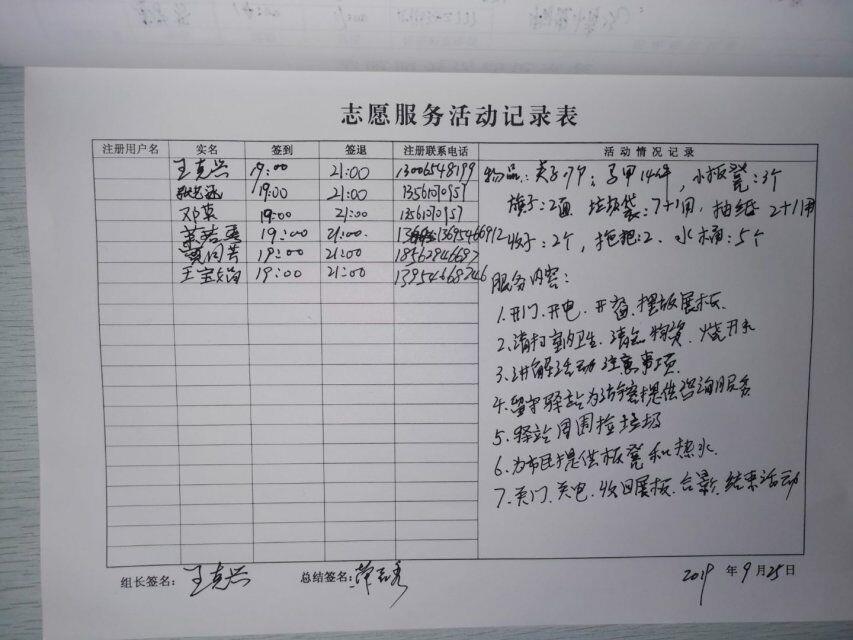 志愿服务活动记录表
注册用户名 实名 签到 签退 注册联系电话 活动情况记录
王克兴 19:00 21:00 13006548199
19:00 21:00 13561070957
邓英 19:00 21:00 13561070957
19:00 21:00 13695466912
19:00 21:00 18562946697
王宝 19:00 21:00 13954668746
物品:夹子 个;马甲14件,小板凳:3个
旗子:2面 垃圾袋:7+1用,抽纸2+1用
:2个,拖把:2、水桶:5个
服务内容:
1.开门、开电、开窗、摆放展板
2.清扫室内卫生、清点物资、烧开水
3.讲解活动注意事项
4.留守驿站为游客提供咨询服务
5.驿站周围捡垃圾
6.为市民提供板凳和热水
7.关门、关电、收回展板、合影、结束活动
组长签名:王克兴 总结签名: 2019年9月25日